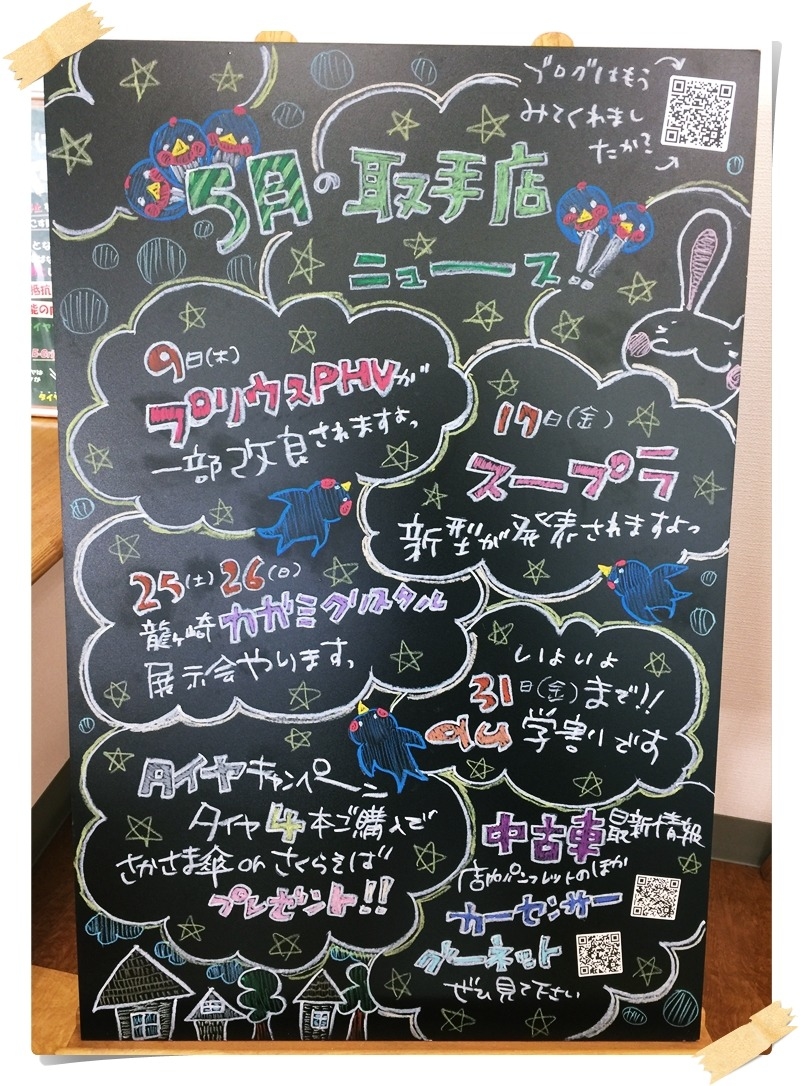 ブログはもう
みてくれまし
たか?
5月の取手店
ニュース!!
9日(木)
プリウスPHVが
一部改良されますよっ
17日(金)
スープラ
新型が発表されますよっ
25(土)26(日)
龍ヶ崎カガミクリスタル
展示会やります。
いよいよ
31日(金)まで!!
au学割です
タイヤキャンペーン
タイヤ4本ご購入で
さかさま傘orさくらそば
プレゼント!!
中古車最新情報
店内パンフレットのほか
カーセンサー
グーネット
ぜひ見て下さい